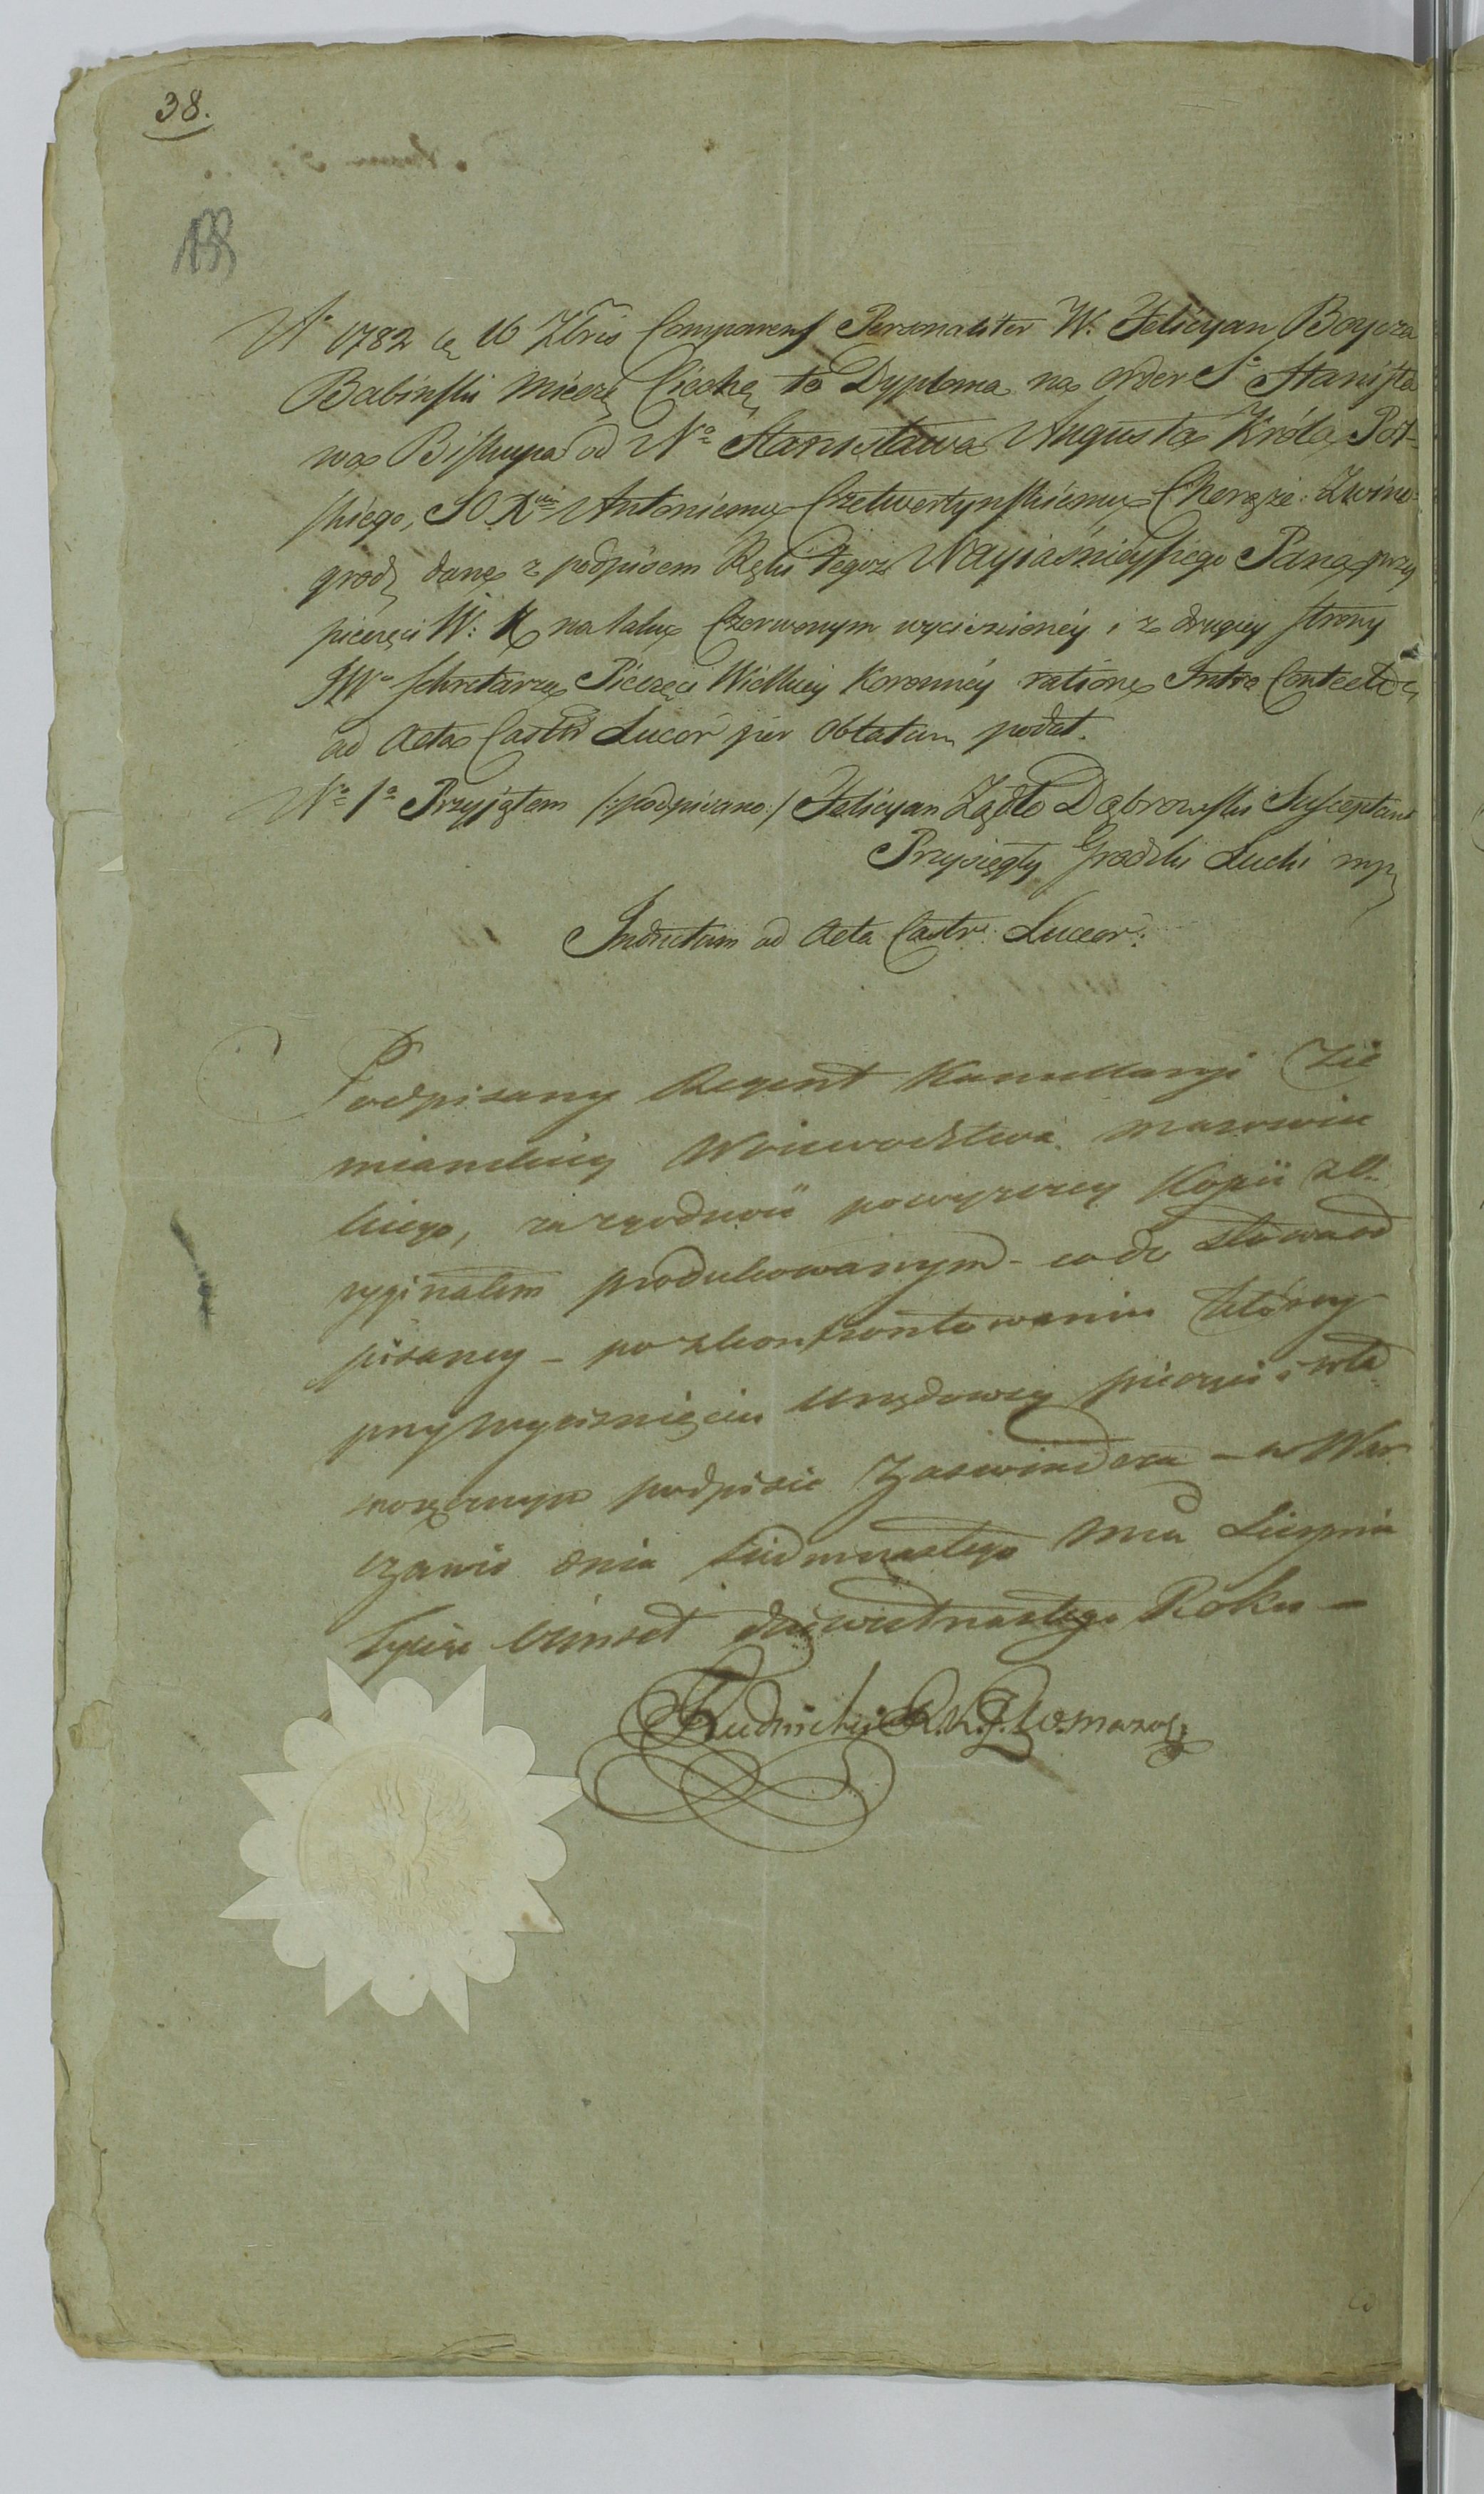 38.
A° 1782 16 Xbris Comparens Personaliter W. Felicyan Boycza
Babinski Miecz: Ciecha: to Dyploma na order S° Stanisła
wa Biskupa od N° Stanisława Augusta Króla Pol-
skiego, JO Xciu Antoniemu Czetwertynskiemu Chorąże: Zwino
grod: dane z podpisem Ręki tegoż Nayjaśnieyszego Pana przy
pieczęci W: K na laku Czerwonym wycisnioney i z drugiey strony
JW° Sekretarza Pieczęci Wielkiey Koronney ratione Intro Contento:
ad Acta Castri Luceor per Oblatam podał.
N° 1° Przyjąłem /:podpisano:/ Felicyan Żądło Dąbrowski Susceptant
Przysięgły Grodzki Łucki mp
Inductum ad Acta Castr: Luceor:
Podpisany Regent Kancellaryi Zie
mianskiey Woiewodztwa Mazowiec
kiego, za zgodność powyższey Kopii z O
ryginałem produkowanym - co do słowa od
pisaney - po skonfrontowaniu którey
przy wyciśnięciu Urzędowey pieczęci i wła
snoręcznym podpisie Zaswiadcza - w War
szawie dnia siedmnastego Mca Sierpnia
Tysiąc Ośmset dziewietnastego Roku -
Rudnicki R.K.Z.Wo.Mazow: